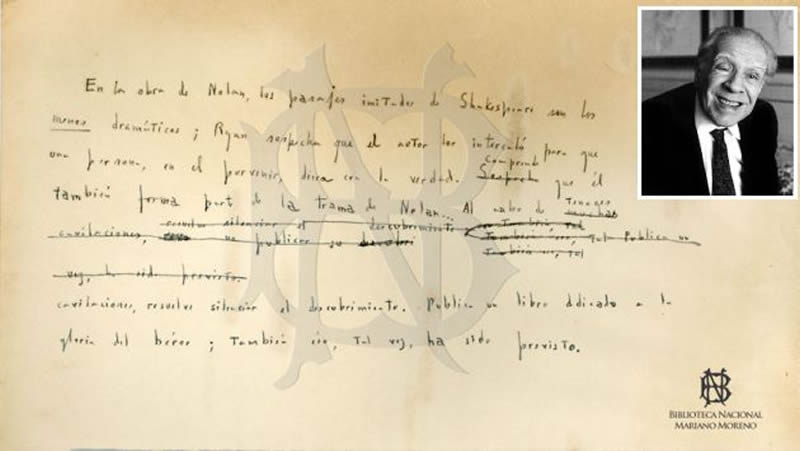 En la obra de Nolan, los pasajes imitados de Shakespeare son los
menos dramáticos; Ryan sospecha que el autor los intercaló para que
una persona, en el porvenir, diera con la verdad. Sospecha Comprende que él
también forma part de la trama de Nolan... Al cabo de muchas tenaces
cavilaciones, resuelve silenciar el descubrimiento
no publicar su También esto, tal Publica un
vez, ha sido previsto.
cavilaciones, resuelve silenciar el descubrimiento. Publica un libro ddicado a la
gloria del héroe; también eso, tal vez, ha sido previsto.
BIBLIOTECA NACIONAL
MARIANO MORENO